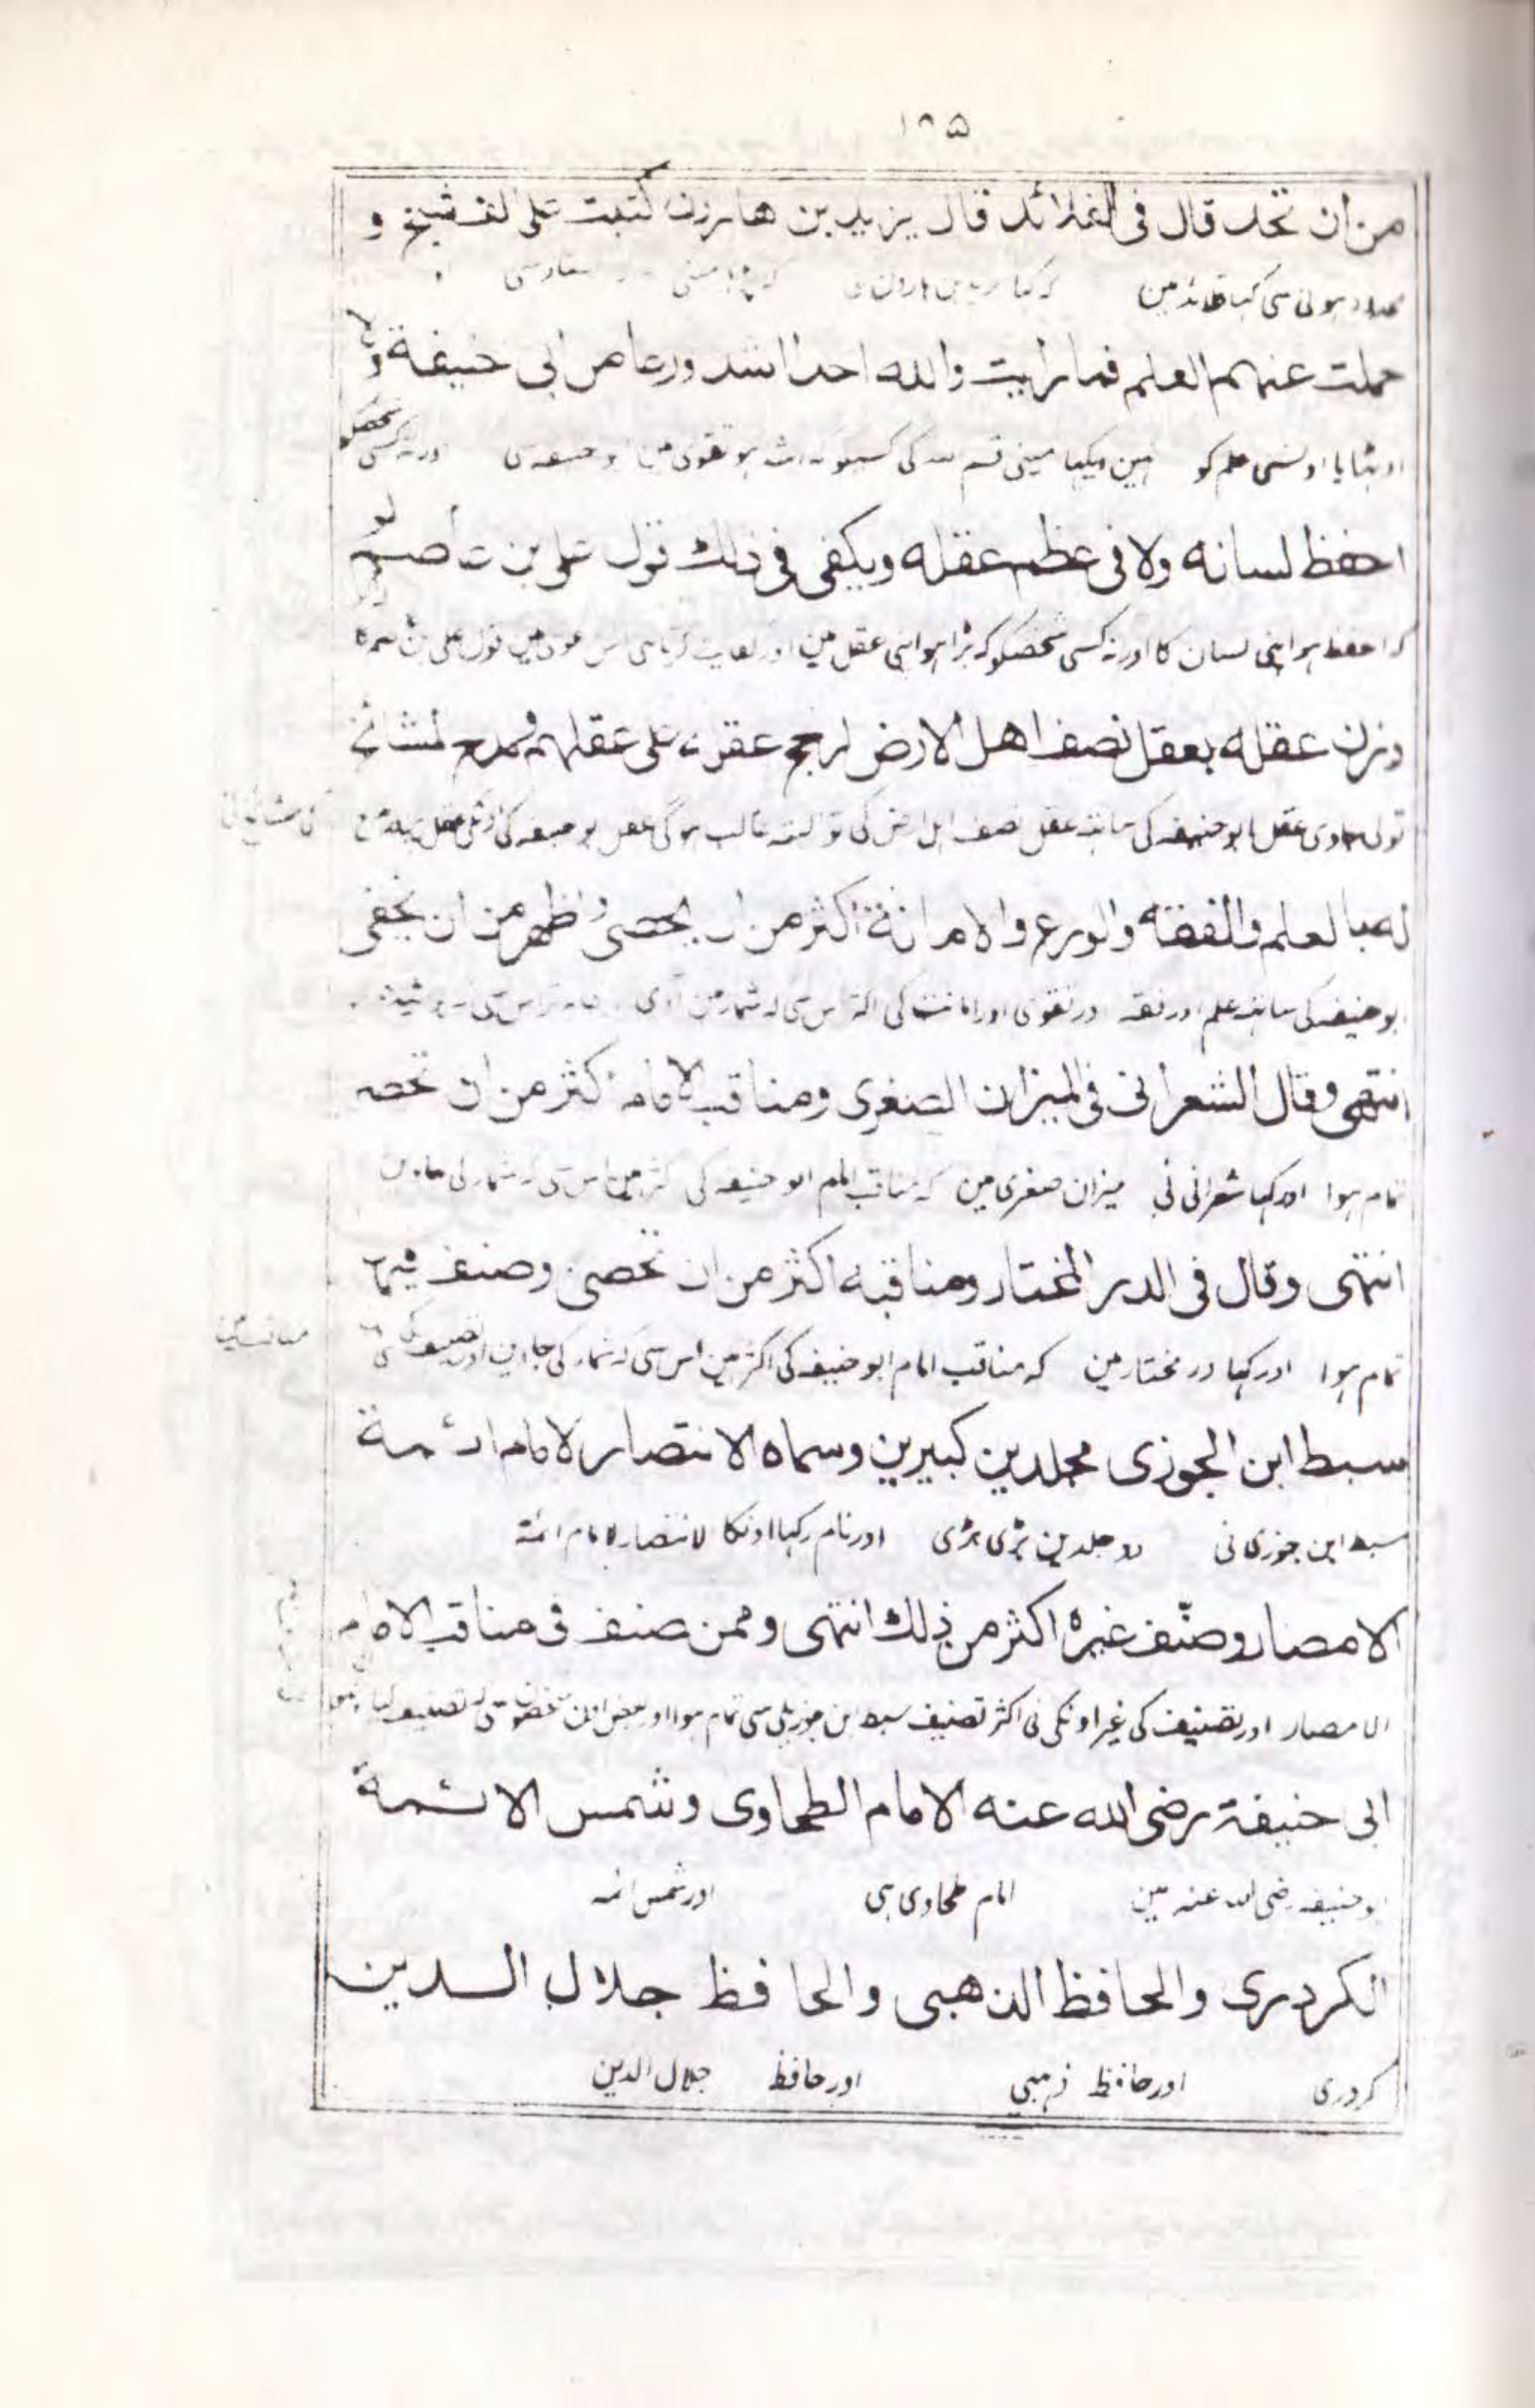 ۱۸۵
من ان تحد قال فی القلائد قال یزید بن هارون کتبت علی الف شیخ و
ہونی سی کہا قلائد مین کہ کہا یزید بن ہارون نی
حملت عنہم العلم فما رأیت والله احدا اشد ورعا من ابی حنیفة ولا
اوٹھایا اونسی علم کو نہین دیکہا مینی قسم اللہ کی تقوی مین ابو حنیفہ سی اور نہ کسی شخصکو
احفظ لسانه ولا فی عظم عقله ویکفی فی ذلك قول علی بن عاصم لو
کہ احفظ ہو اپنی لسان کا اور نہ کسی شخصکو کہ بڑا ہو اپنی عقل مین اور قول علی بن
وزن عقله بعقل نصف اهل الارض لرجح عقله علی عقلهم ومدح المشائخ
تولی جاوی عقل ابو حنیفہ کی ساتہہ عقل نصف اہل ارض کی تو البتہ غالب ہوگی عقل بو حنیفہ کی
له بالعلم والفقه والورع والامانة اکثر من ان یحصی واظهر من ان یخفی
ابو حنیفہ کی ساتہہ علم اور فقہ اور تقوی اور امانت کی اکثر اس سی کہ شمار مین آوی
انتهی وقال الشعرانی فی المیزان الصغری ومناقب الامام اکثر من ان تحصی
تمام ہوا اور کہا شعرانی نی میزان صغری مین کہ مناقب امام ابو حنیفہ کی اکثر مین اس سی کہ شمار کی جاوین
انتهی وقال فی الدر المختار ومناقبه اکثر من ان تحصی وصنف فیها
تمام ہوا اور کہا در مختار مین کہ مناقب امام ابو حنیفہ کی اکثر مین اس سی کہ شمار کی جاوین اور تصنیف کی
سبط ابن الجوزی مجلدین کبیرین وسماه الانتصار لامام ائمة
سبط ابن جوزی نی دو جلدین بڑی بڑی اور نام رکہا اونکا الانتصار لامام ائمة
الامصار وصنّف غیره اکثر من ذلك انتهی وممن صنف فی مناقب الامام
الامصار اور تصنیف کی غیر اونکی نی اکثر تصنیف سبط ابن جوزی سی تمام ہوا اور بعض
ابی حنیفة رضی الله عنه الامام الطحاوی وشمس الائمة
ابو حنیفہ رضی اللہ عنہ مین امام طحاوی ہی اور شمس ائمہ
الکردری والحافظ الذهبی والحافظ جلال الدین
کردری اور حافظ ذہبی اور حافظ جلال الدین